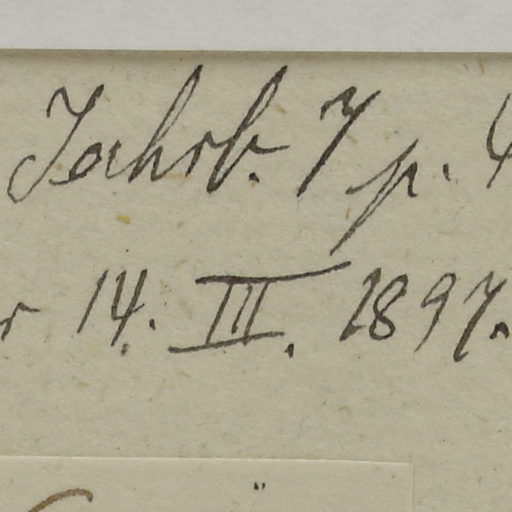 Jahrb. 7 p.
14. III. 1897.